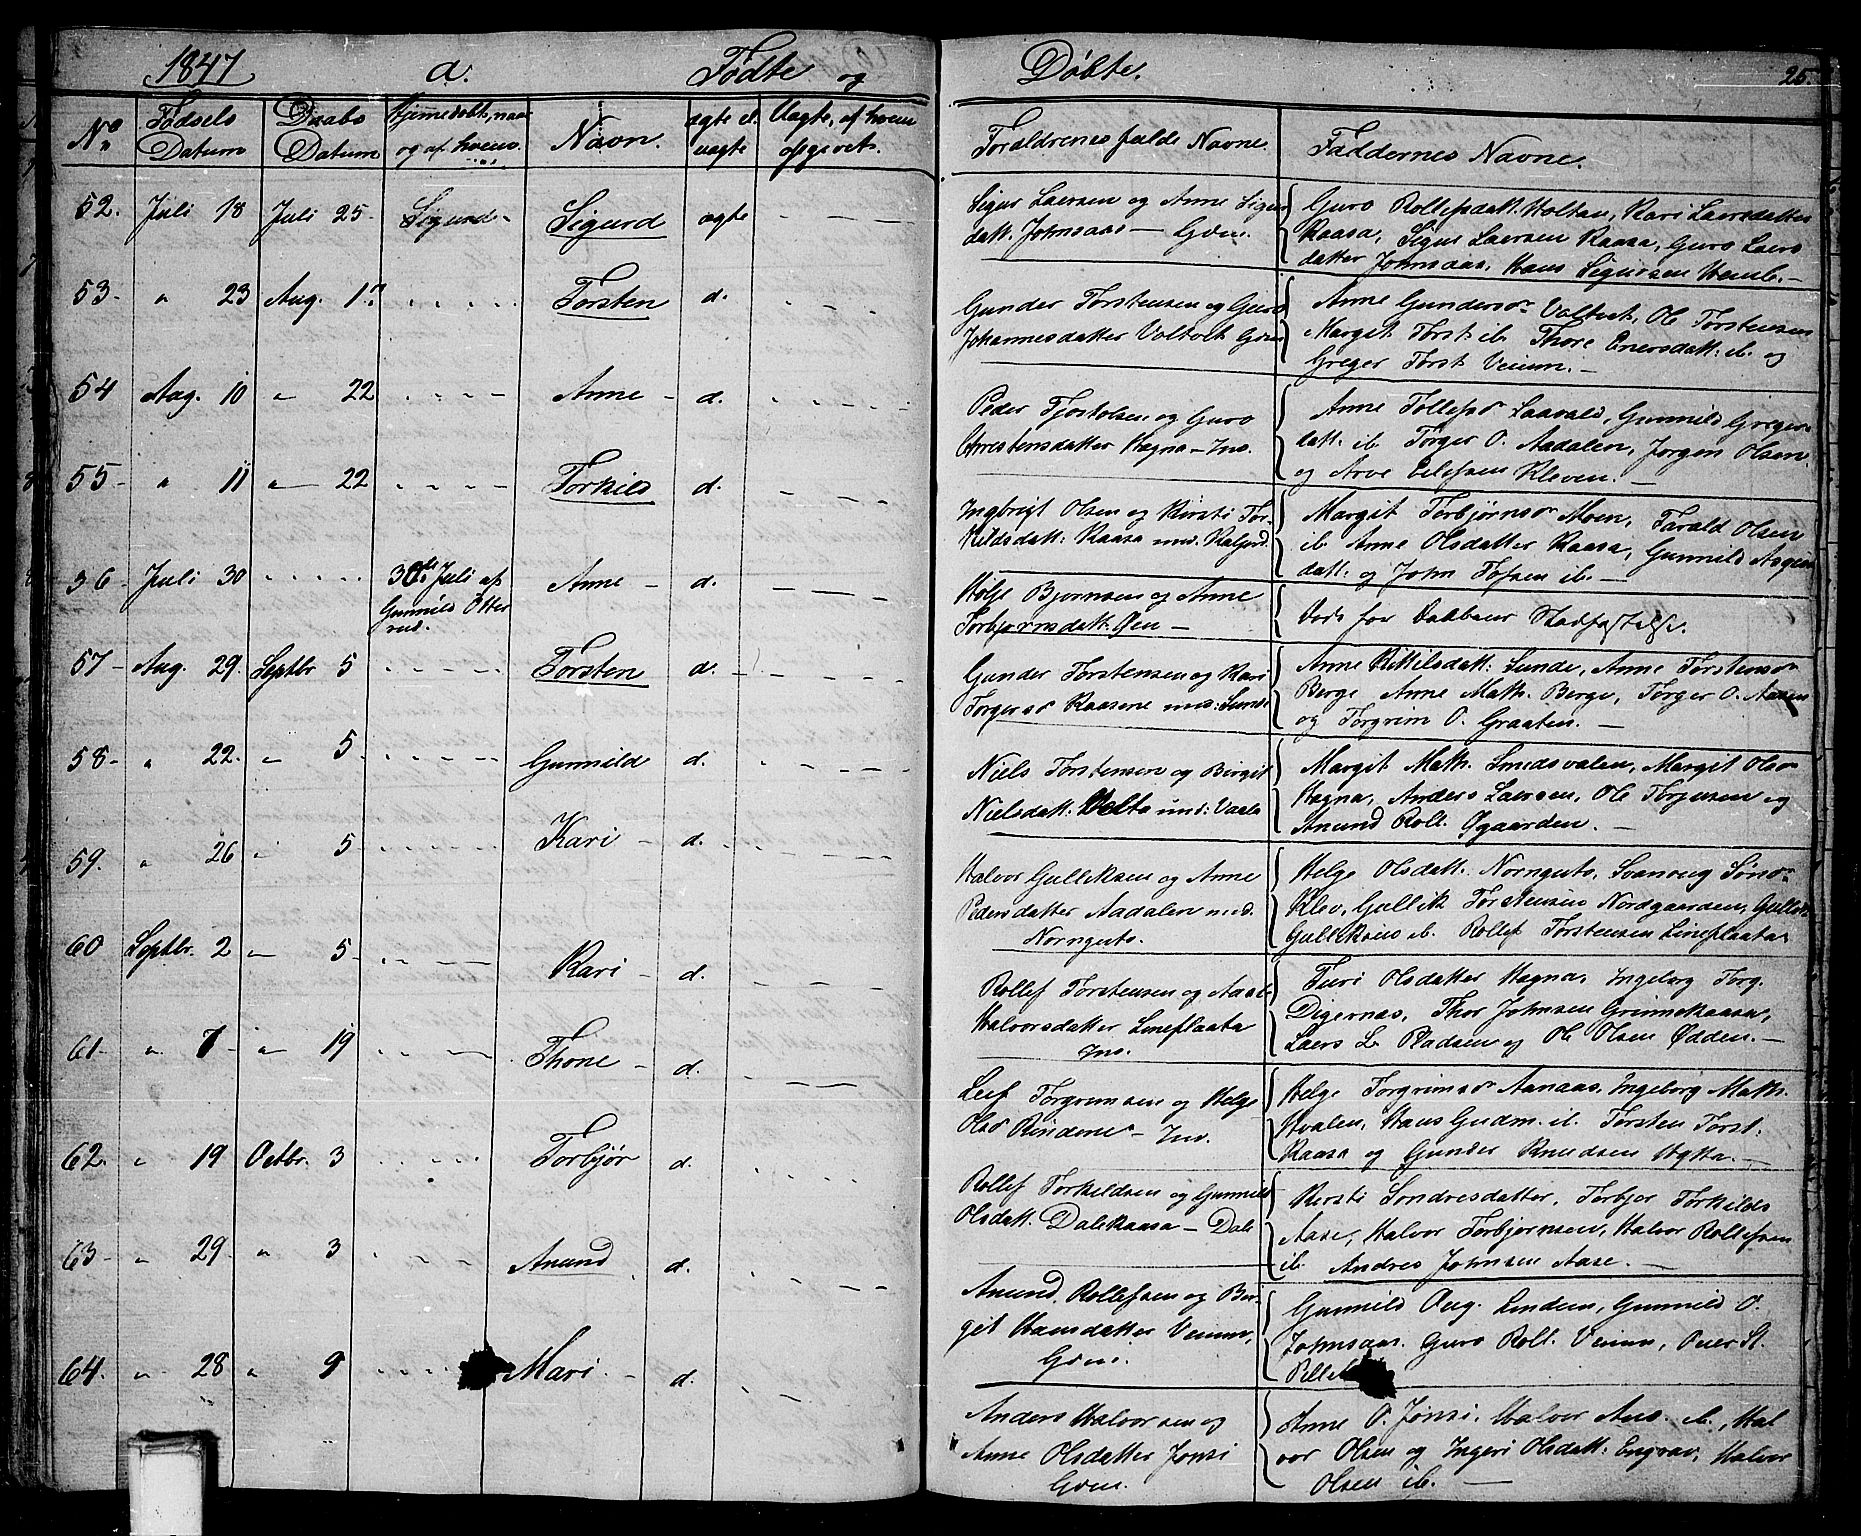 1847 a. Fødte og Døbte. 25.
No. Fødsels Datum Daabs Datum Hjemmedøbt, naar og af hvem Navn. ægte el. uægte Uægte, af hvem opgivet. Forældrenes fulde Navne. Faddernes Navne.
52. Juli 18 Juli 25 Sigurd ægte
Sigur Laersen og Anne Sigur
datt. Johnsaas — Grn.
Guro Rollefsdatt. Holtan, Kari Laersdatter
Kaasa, Sigur Laersen Kaasa, Guro Laers
datter Johnsaas, Hans Sigursen Hemb. —
53 " 23 Aug. 1 Torsten d.
Gunder Torstensen og Guro
Johannesdatter Valtvet
Anne Gundersdr Valtvet, Ole Torstensen
Margit Torst. ib. Thore Enersdatt. ib. og
Greger Torst Veium. —
54 Aug. 10 " 22 Anne d.
Peder Tjostolsen og Guro
Chrestensdatter Hagna — Ins.
Anne Tollefsdr Laavald, Gunnild Greger
datt. ib. Torger O. Aadalen, Jørgen Olsen
og Arve Eilefsen Kleven. —
55 " 11 " 22 Torkild d.
Ingbrigt Olsen og Kirsti Tor-
kildsdatt: Kaasa
Margit Torbjørnsdr Moen, Tarald Olsen
ib. Anne Olsdatter Kaasa, Gunnild
datt: og John Tofsen ib. —
56 Juli 30 30te Juli af Gunnild Otter Anne d.
Helge Bjørnsen og Anne
Torbjørnsdatt. Øen —
Døde før Daabens Stadfæstelse.
57 Aug. 29. Septbr 5 Torsten d.
Gunder Torstensen og Kari
Torgersdr Kaasene
Anne Kittilsdatt: Sunde, Anne Torstensdr
Berge Anne Math. Berge, Torger O. Aasen
og Torgrim O. Graaten. —
58 " 22. " 5 Gunnild d.
Niels Torstensen og Birgit
Nielsdatt: Holta
Margit Math. Smedsvalen, Margit Olsdr
Hagna, Anders Laersen, Ole Torjussen og
Anund Roll. Øgaarden. —
59. " 26 " 5 Kari d.
Halvor Gulleksen og Anne
Pedersdatter Aadalen
Nornguto.
Helge Olsdatt. Nornguto, Svanoug Sønd
Klev, Gullik Torstensen Nordgaarden,
Gulliksens ib. Rollef Torstensen Lineflaata
60 Septbr. 2 " 5 Kari d.
Rollef Torstensen og Aase
Halvorsdatter Lineflaata
Ins.
Turi Olsdatter Hagna, Ingeborg Torg.
Digernæs, Thor Johnsen Grinnekaasa,
Laers L. Pladsen og Ole Olsen Ødden. —
61 " 7 " 19 Thone d.
Leif Torgrimsen og Helge
Olsdr Rindene — Ins.
Helge Torgrimsdr Aanaas, Ingeborg Math.
Hvalen, Hans Gudm. ib. Torsten Torst:
Kaasa og Gunder Knudsen Hytta. —
62. " 19 Octbr. 3 Torbjør d.
Rollef Torkeldsen og Gunnild
Olsdatt. Dalekaasa — Dale
Kirsti Sondresdatter, Torbjør Torkilds
Aase, Halvor Torbjørnsen, Halvor Rollefsen
ib. Andres Johnsen Aase. —
63 " 29 " 3 Anund d.
Anund Rollefsen og Ber-
git Hansdatter Veium,
Grn.
Gunnild Aug. Lindem, Gunnild O.
Johnsaas. Guro Roll. Veium, Peer St.
64. " 28 " 9 Mari d.
Anders Halvorsen og
Anne Olsdatter Jønsi
Grn.
Anne O. Jønsi, Halvor And. ib., Hal
vor Olsen og Ingeri Olsdatt. Engrav, Halvor
Olsen ib. —